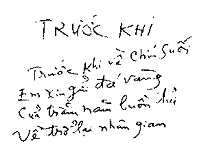 TRƯỚC KHI
Trước khi về Chín Suối
Em xin gửi đá vàng
Của trăm năm luôn thể
Về trở lại nhân gian